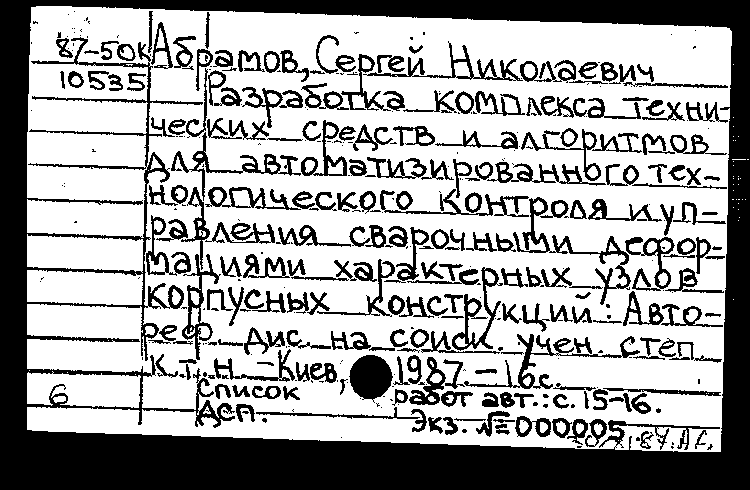 87-50К Абрамов, Сергей Николаевич
10535 Разработка комплекса техни-
ческих средств и алгоритмов
для автоматизированного тех-
нологического контроля и уп-
равления сварочными дефор-
мациями характерных узлов
корпусных конструкций: Авто-
реф. дис. на соиск. учен. степ.
к.т.н. -Киев, 1987. - 16с.
6 Список работ авт.: с. 15-16.
ДСП. Экз. № 000005